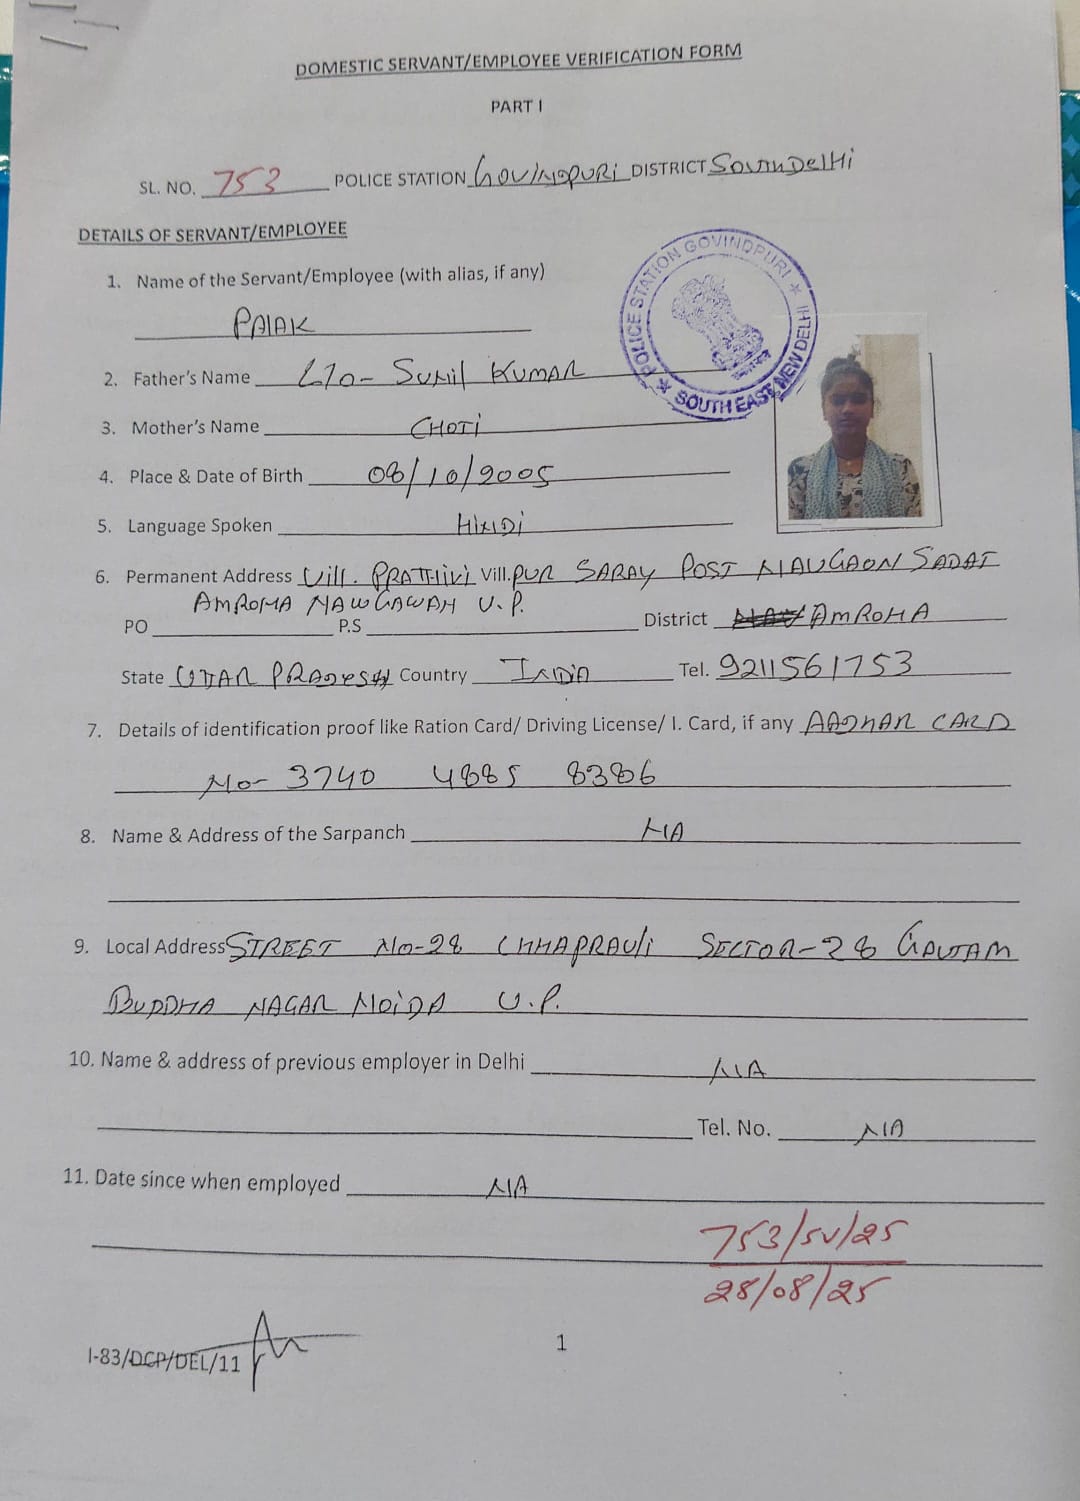 DOMESTIC SERVANT/EMPLOYEE VERIFICATION FORM
PART I
SL. NO. 753 POLICE STATION GOVINDPURI DISTRICT SOUTH DELHI
DETAILS OF SERVANT/EMPLOYEE
POLICE STATION GOVINDPURI
SOUTH EAST, NEW DELHI
1. Name of the Servant/Employee (with alias, if any)
PALAK
2. Father's Name SUNIL KUMAR
3. Mother's Name CHOTI
4. Place & Date of Birth 08/10/2005
5. Language Spoken HINDI
6. Permanent Address Vill. PRATHIVI Vill. PUR SARAY POST NAUGAON SADAT
AMROHA NAWGAWAH U.P.
PO P.S District AMROHA
State UTTAR PRADESH Country INDIA Tel. 9211561753
7. Details of identification proof like Ration Card/ Driving License/ I. Card, if any AADHAR CARD
No- 3740 4885 8386
8. Name & Address of the Sarpanch NA
9. Local Address STREET NO-28 CHHAPRAULI SECTOR-28 GAUTAM
BUDDHA NAGAR NOIDA U.P.
10. Name & address of previous employer in Delhi NA
Tel. No. NA
11. Date since when employed NA
753/SV/25
28/08/25
I-83/DCP/DEL/11
1